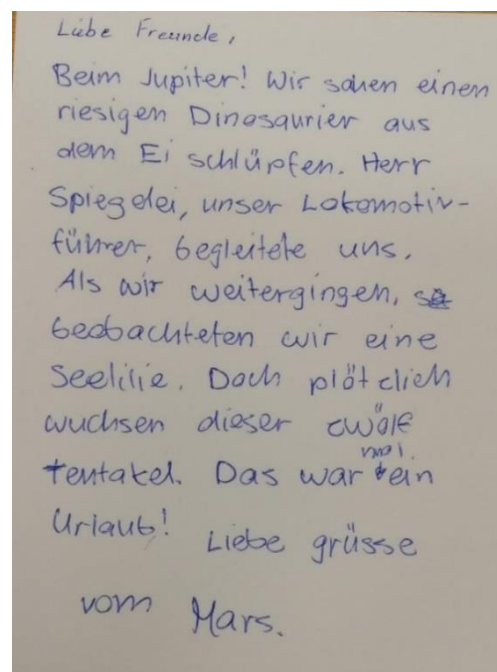 Liebe Freunde,
Beim Jupiter! Wir sahen einen
riesigen Dinosaurier aus
dem Ei schlüpfen. Herr
Spiegelei, unser Lokomotiv-
führer, begleitete uns.
Als wir weitergingen,
beobachteten wir eine
Seelilie. Doch plötzlich
wuchsen dieser zwölf
tentakel. Das war mal ein
Urlaub! Liebe grüsse
vom Mars.